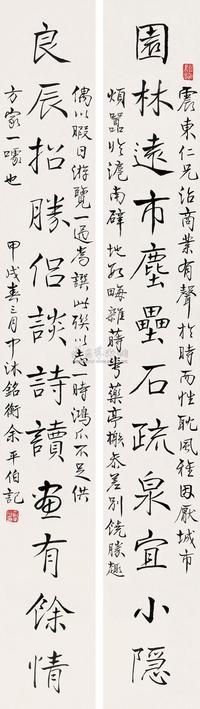 園林遠市塵壘石疏泉宜小隱
良辰招勝侶談詩讀畫有餘情
震東仁兄治商業有聲於時而性耽風雅因厭城市
煩囂於滬南辟地數畮雜蒔花藥亭榭參差別饒勝趣
偶以暇日游覽一過爲譔此聯以志一時鴻爪不足供
方家一噱也
甲戌春三月中沐銘衡余平伯記